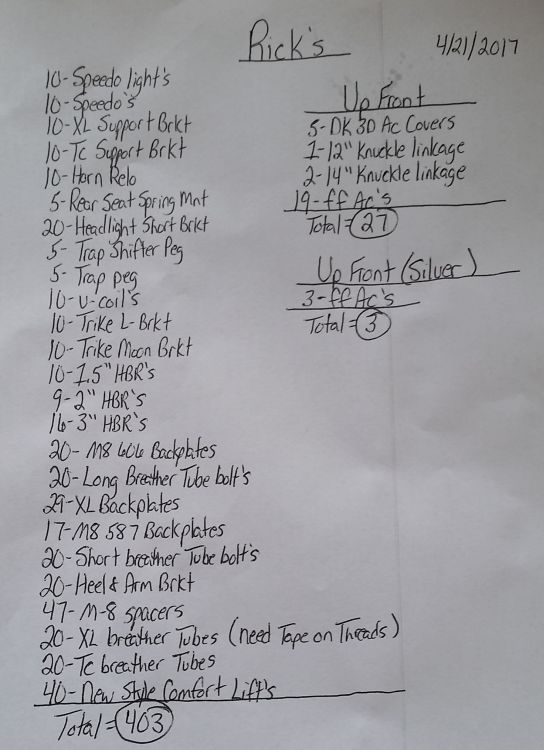 Rick's
4/21/2017
10-Speedo light's
10-Speedo's
10-XL Support Brkt
10-Tc Support Brkt
10-Horn Relo
5-Rear Seat Spring Mnt
20-Headlight Short Brkt
5-Trap Shifter Peg
5-Trap peg
10-U-coil's
10-Trike L-Brkt
10-Trike Moon Brkt
10-1.5" HBR's
9-2" HBR's
16-3" HBR's
20-M8 606 Backplates
20-Long Breather Tube bolt's
29-XL Backplates
17-M8 587 Backplates
20-Short breather Tube bolt's
20-Heel & Arm Brkt
47-M-8 spacers
20-XL breather Tubes (need Tape on Threads)
20-Tc breather Tubes
40-New Style Comfort Lift's
Total=403
Up Front
5-DK 3D Ac Covers
1-12" Knuckle linkage
2-14" Knuckle linkage
19-ff Ac's
Total=27
Up Front (Silver)
3-ff Ac's
Total=3